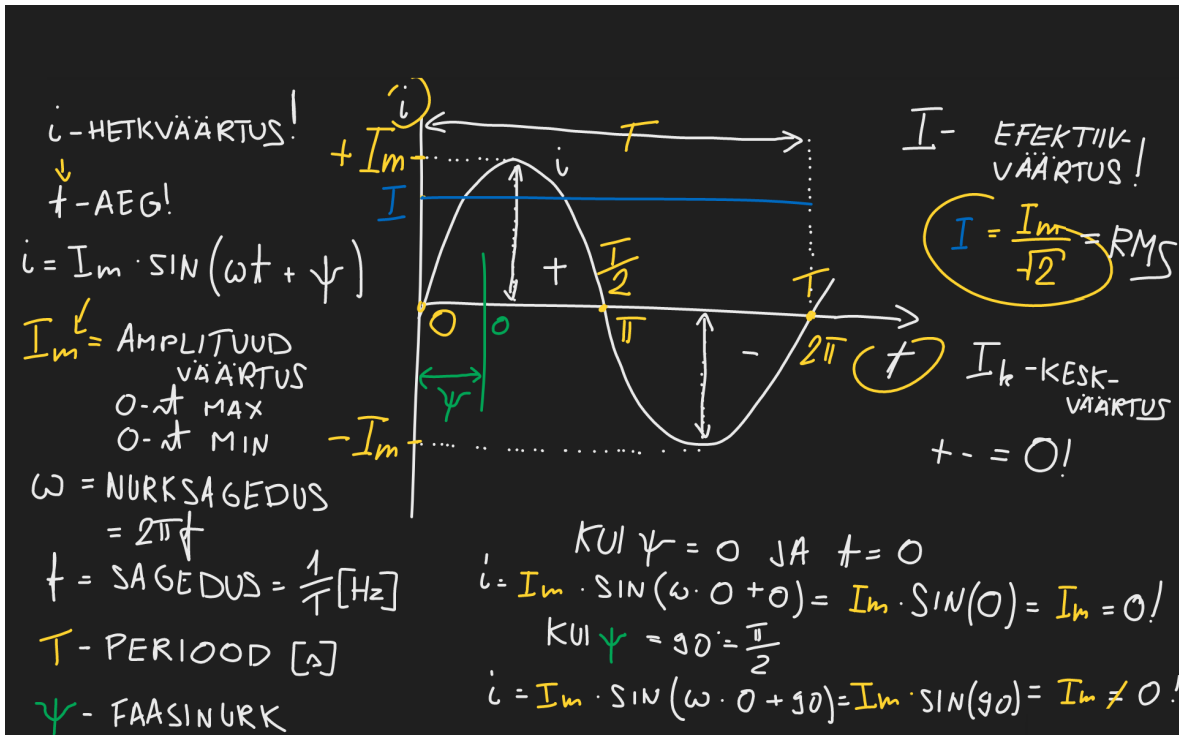 i - HETKVÄÄRTUS!
t - AEG!
i = Im · SIN(ωt + ψ)
Im = AMPLITUUD
VÄÄRTUS
0-st MAX
0-st MIN
ω = NURKSAGEDUS
= 2πf
f = SAGEDUS = 1/T [Hz]
T - PERIOOD [s]
ψ - FAASINURK
i
T
+Im
i
I
+
T/2
T
0
0
π
2π
t
ψ
-
-Im
I - EFEKTIIV-
VÄÄRTUS!
I = Im/√2 = RMS
Ik - KESK-
VÄÄRTUS
+ - = 0!
KUI ψ = 0 JA t = 0
i = Im · SIN(ω · 0 + 0) = Im · SIN(0) = Im = 0!
KUI ψ = 90° = π/2
i = Im · SIN(ω · 0 + 90) = Im · SIN(90) = Im ≠ 0!